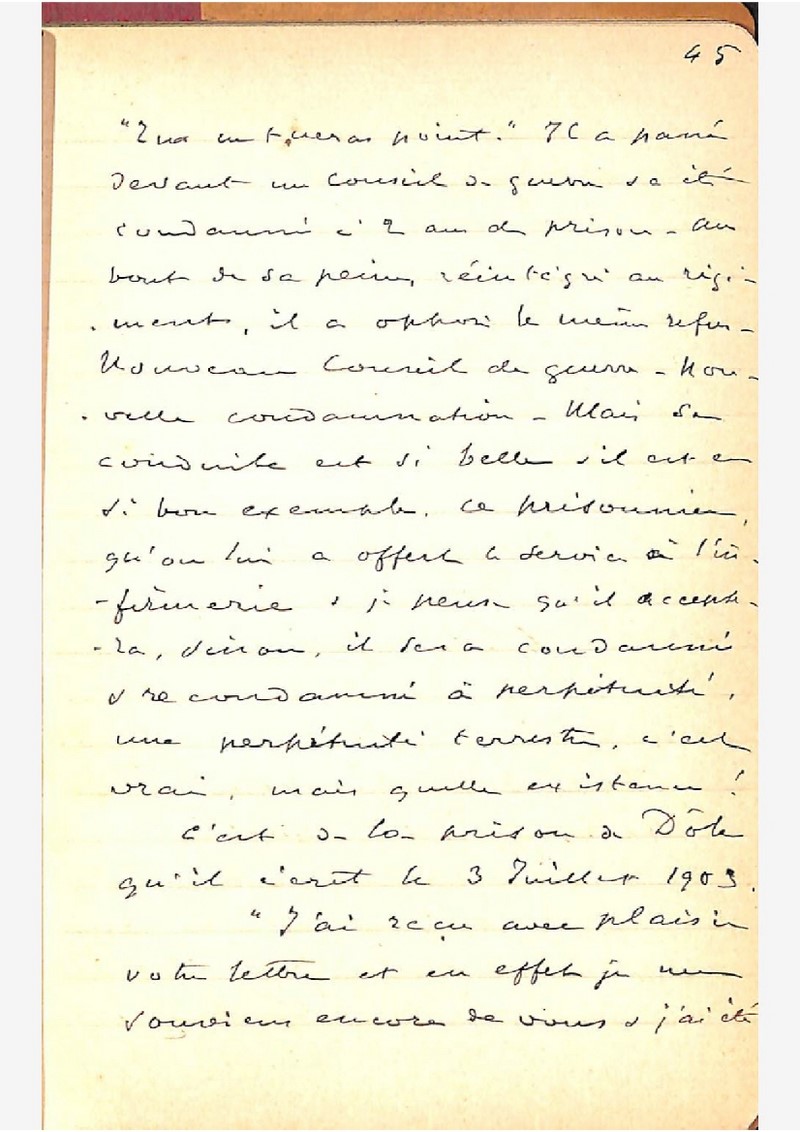 45
"Tu ne tueras point." Il a passé
devant un Conseil de guerre & a été
condamné à 2 ans de prison - Au
bout de sa peine, réintégré au régi-
-ment, il a opposé le même refus -
Nouveau Conseil de guerre - Nou-
-velle condamnation - Mais sa
conduite est si belle & il est en
si bon exemple, ce prisonnier,
qu'on lui a offert le service à l'in-
-firmerie & je pense qu'il accepte-
-ra, sinon, il sera condamné
& recondamné à perpétuité,
une perpétuité terrestre, c'est
vrai, mais quelle existence !
C'est de la prison de Dôle
qu'il écrit le 3 Juillet 1903.
"J'ai reçu avec plaisir
votre lettre et en effet je me
souviens encore de vous & j'ai été